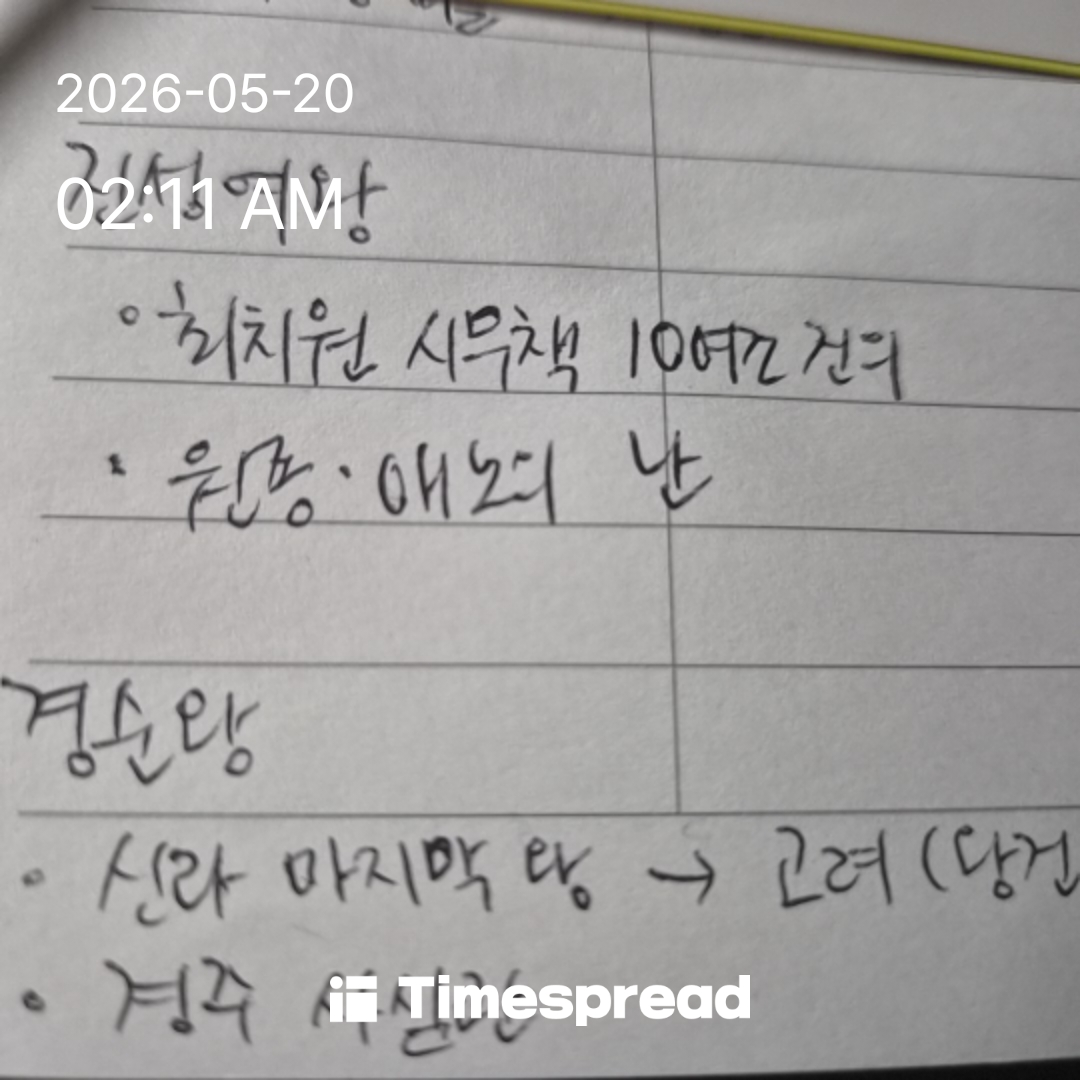 2026-05-20
진성여왕
02:11 AM
최치원 시무책 10여조 건의
· 원종·애노의 난
경순왕
· 신라 마지막 왕 → 고려 (왕건
· 경주 사심관
Timespread